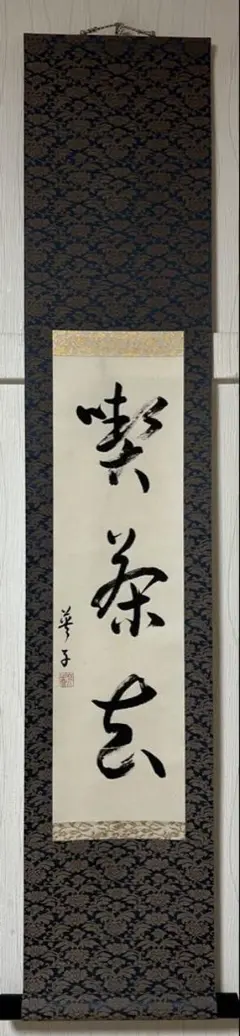 喫茶去
華子